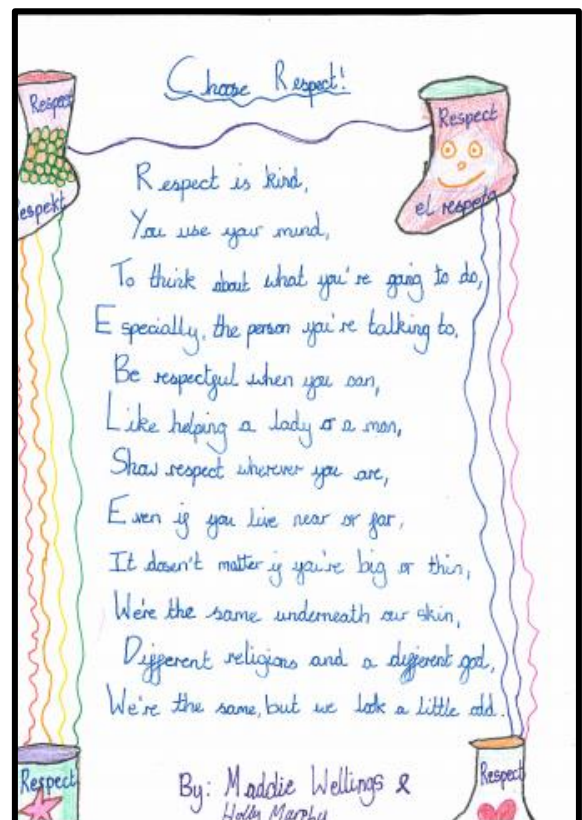 Choose Respect!
Respect
Respekt
Respect
el respeto
Respect is kind,
You use your mind,
To think about what you're going to do,
Especially, the person you're talking to.
Be respectful when you can,
Like helping a lady or a man,
Show respect wherever you are,
Even if you live near or far,
It dosen't matter if you're big or thin,
We're the same underneath our skin,
Different religions and a different god,
We're the same, but we look a little odd.
Respect
Respect
By: Maddie Wellings &
Holly Murphy